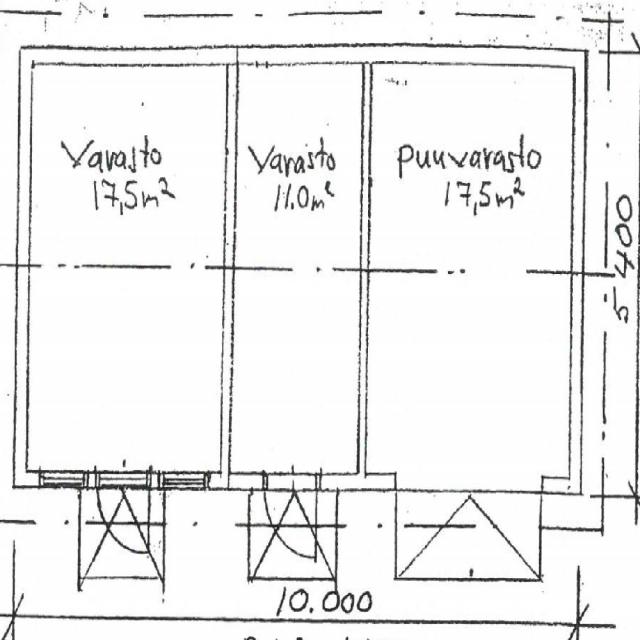 Varasto
17,5m²
Varasto
11.0m²
puuvarasto
17,5m²
5 400
10.000